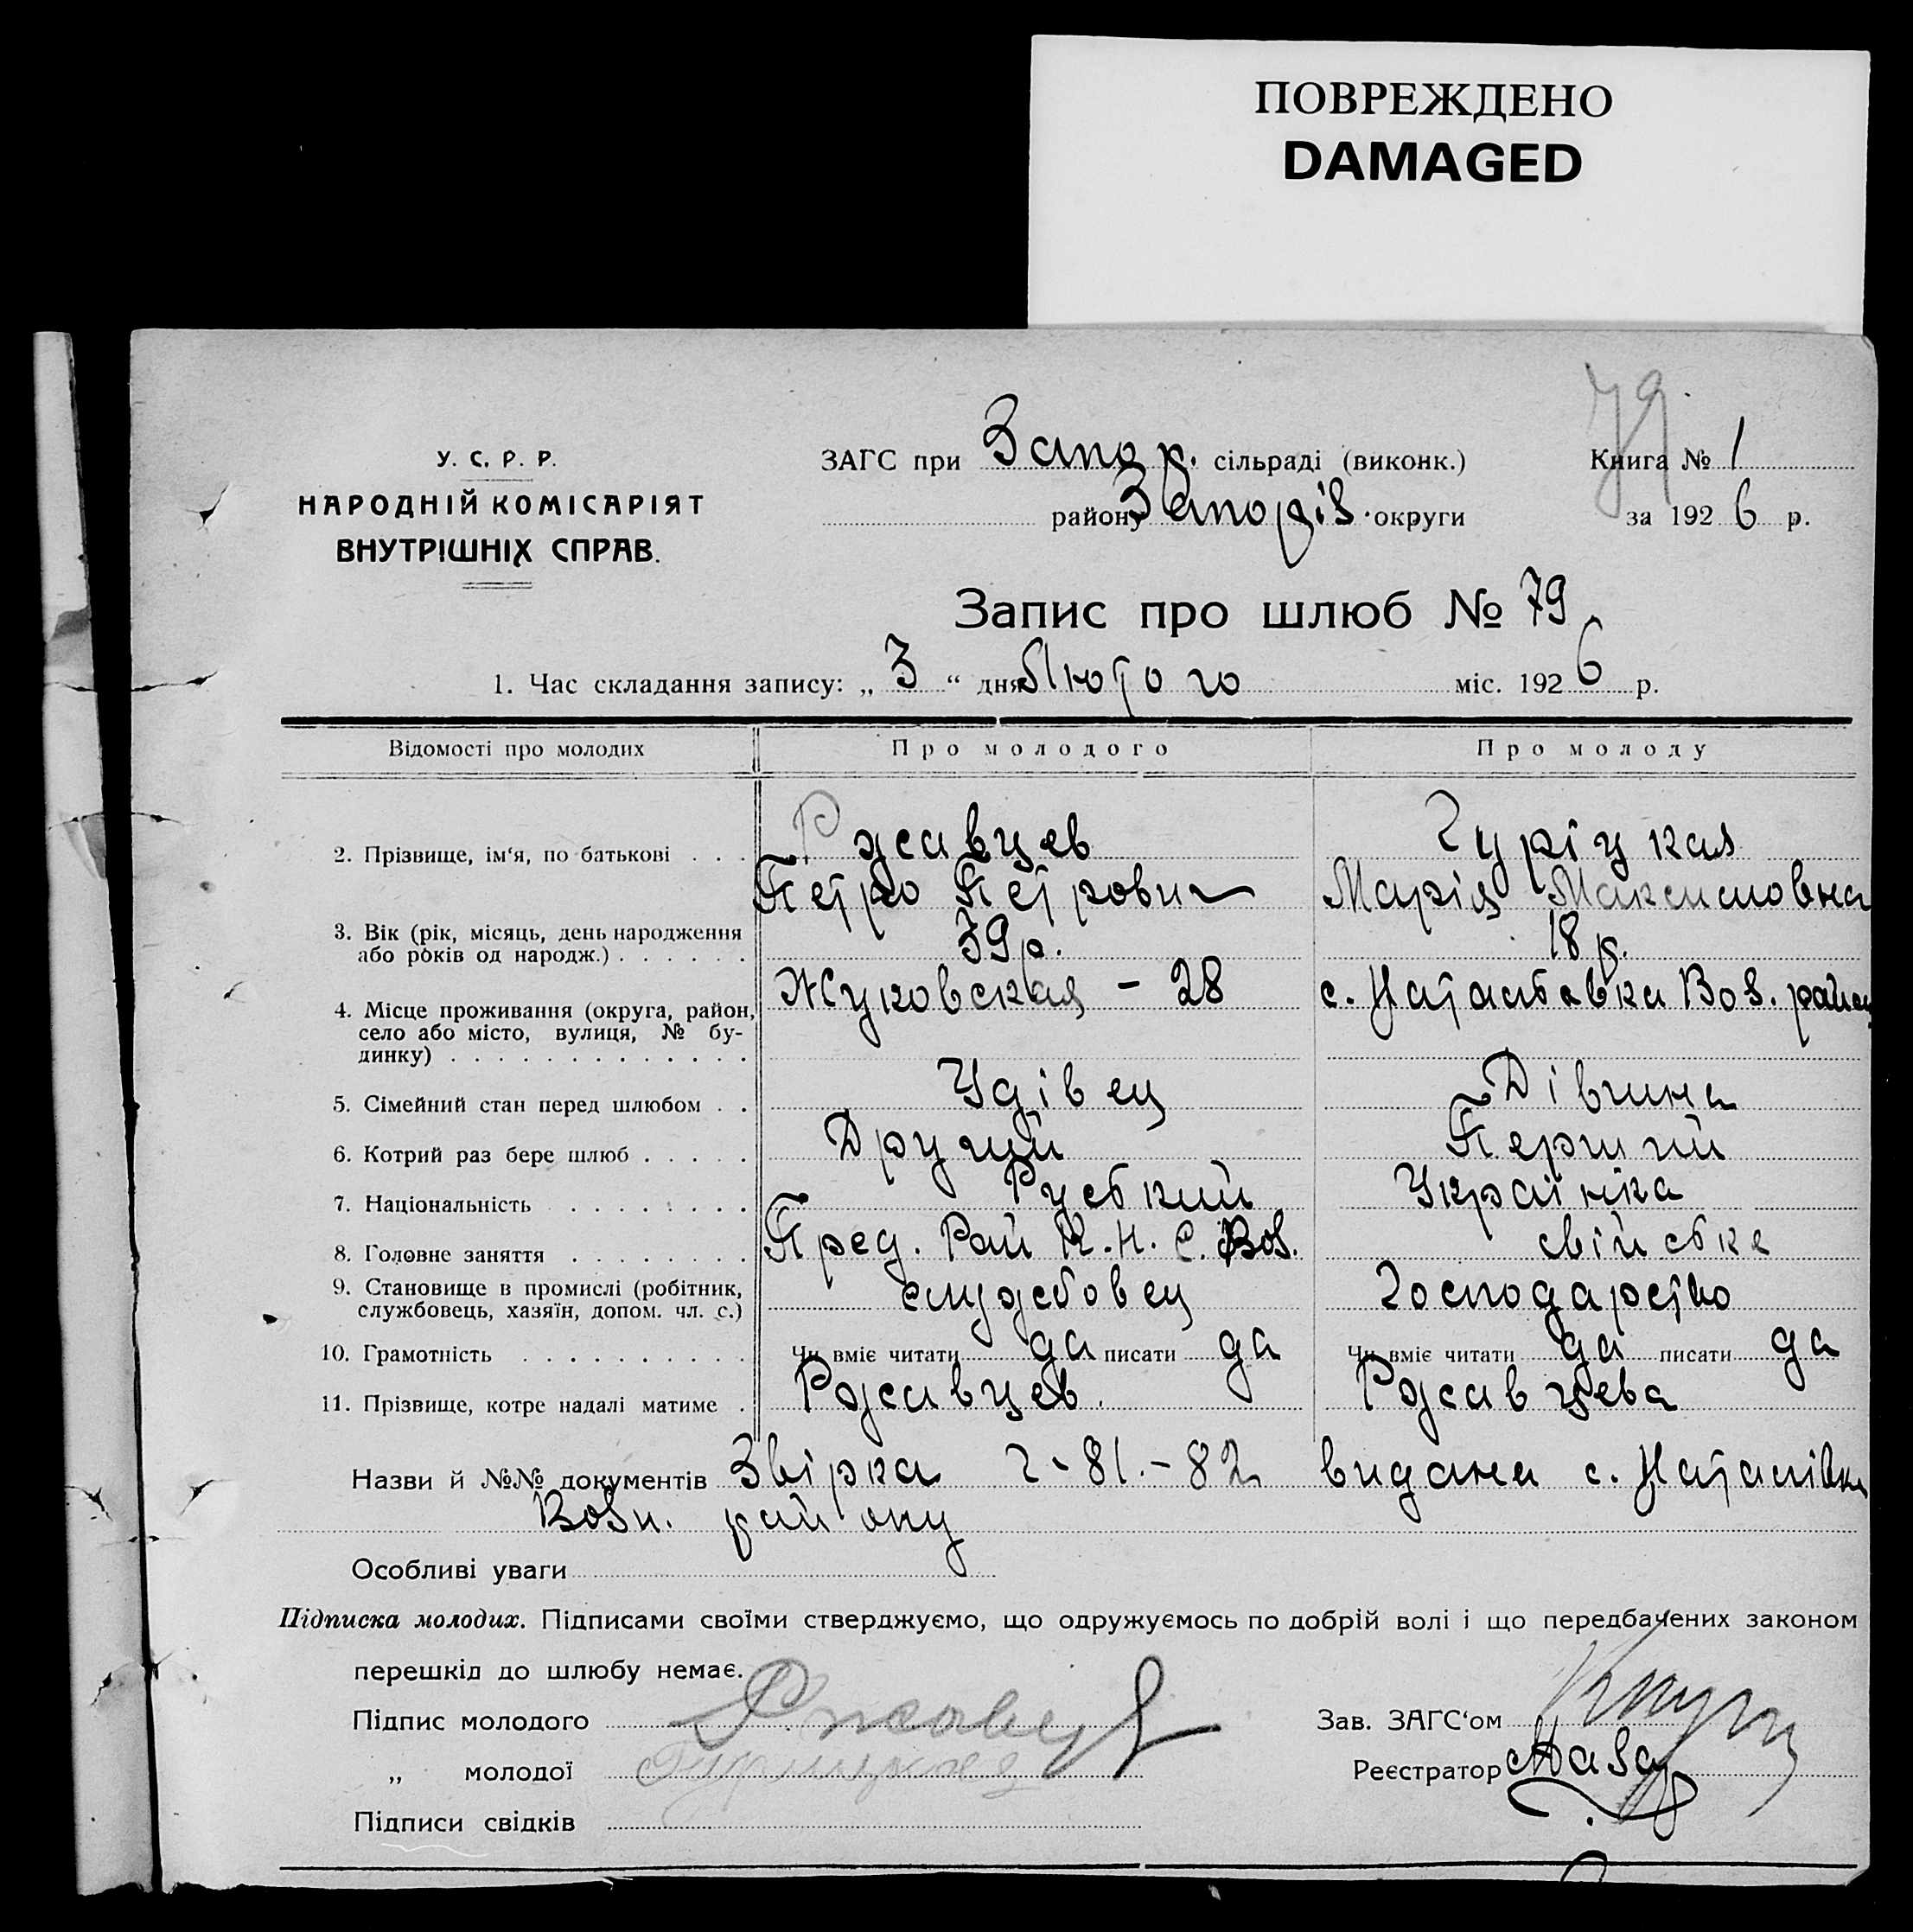 ПОВРЕЖДЕНО
DAMAGED
79
У. С. Р. Р.
НАРОДНІЙ КОМІСАРІЯТ
ВНУТРІШНІХ СПРАВ.
ЗАГС при Запор. сільраді (виконк.)
району Запоріз. округи
Книга № 1
за 1926 р.
Запис про шлюб № 79
1. Час складання запису: „ 3 “ дня Лютого міс. 1926 р.
Відомості про молодих Про молодого Про молоду
2. Прізвище, ім‘я, по батькові . . . Ржавцев Гуріцкая
Петро Петрович Марія Максимовна
3. Вік (рік, місяць, день народження
або років од народж.) . . . . . . 39 р. 18 р.
4. Місце проживання (округа, район,
село або місто, вулиця, № бу-
динку) . . . . . . . . . . . . . Жуковская - 28 с. Воз. район
5. Сімейний стан перед шлюбом . . Удівец Дівчина
6. Котрий раз бере шлюб . . . . . Другий Перший
7. Національність . . . . . . . . Руський Українка
8. Головне заняття . . . . . . . . Пред. Рай К.Н.С. Воз. свійське
9. Становище в промислі (робітник,
службовець, хазяїн, допом. чл. с.) службовец господарство
10. Грамотність . . . . . . . . . . Чи вміє читати да писати да Чи вміє читати да писати да
11. Прізвище, котре надалі матиме . Ржавцев. Ржавцева
Назви й №№ документів Звірка 2-81.-82 видана с. Наталівка
Возн. району
Особливі уваги
Підписка молодих. Підписами своїми стверджуємо, що одружуємось по добрій волі і що передбачених законом
перешкід до шлюбу немає.
Підпис молодого Ржавцев
„ молодої Гурицкая
Підписи свідків
Зав. ЗАГС‘ом
Реєстратор